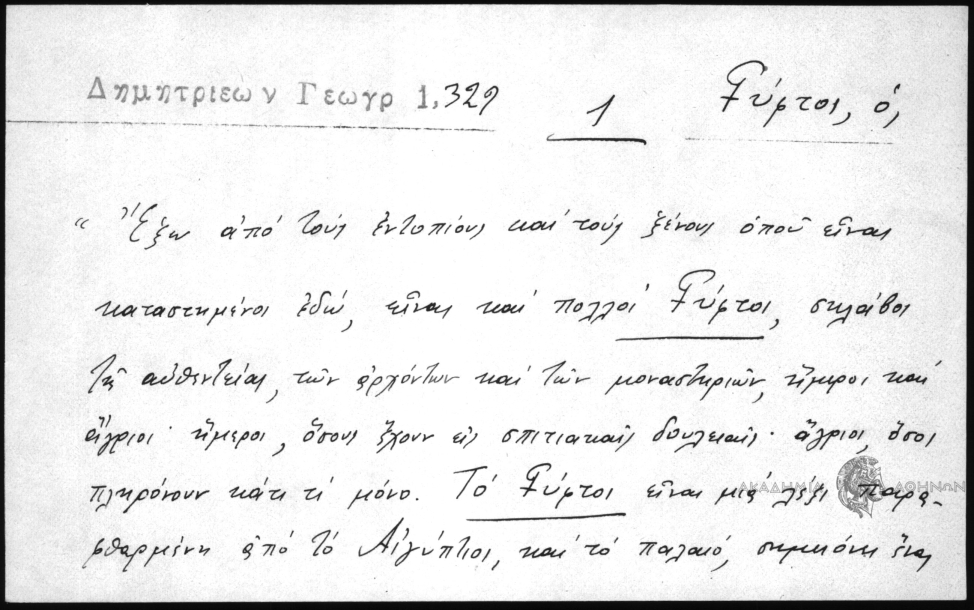 Δημητριεων Γεωγρ 1,329
1
Γύφτοι, ὁ,
"Ἔξω ἀπό τούς ἐντοπίους καί τούς ξένους ὁποῦ εἶναι
καταστημένοι ἐδώ, εἶναι καί πολλοί Γύφτοι, σκλάβοι
τῆς αὐθεντείας, τῶν ἀρχόντων καί τῶν μοναστηριῶν, ἥμεροι καί
ἄγριοι· ἥμεροι, ὅσους ἔχουν εἰς σπιτιακαῖς δουλειαῖς· ἄγριοι, ὅσοι
πληρόνουν κάτι τί μόνο. Τό Γύφτοι εἶναι μιά λέξι παρα-
φθαρμένη ἀπό τό Αἰγύπτιοι, καί τό παλαιό, σημαιόνει ἕνας
ΑΚΑΔΗΜΙΑ ΑΘΗΝΩΝ